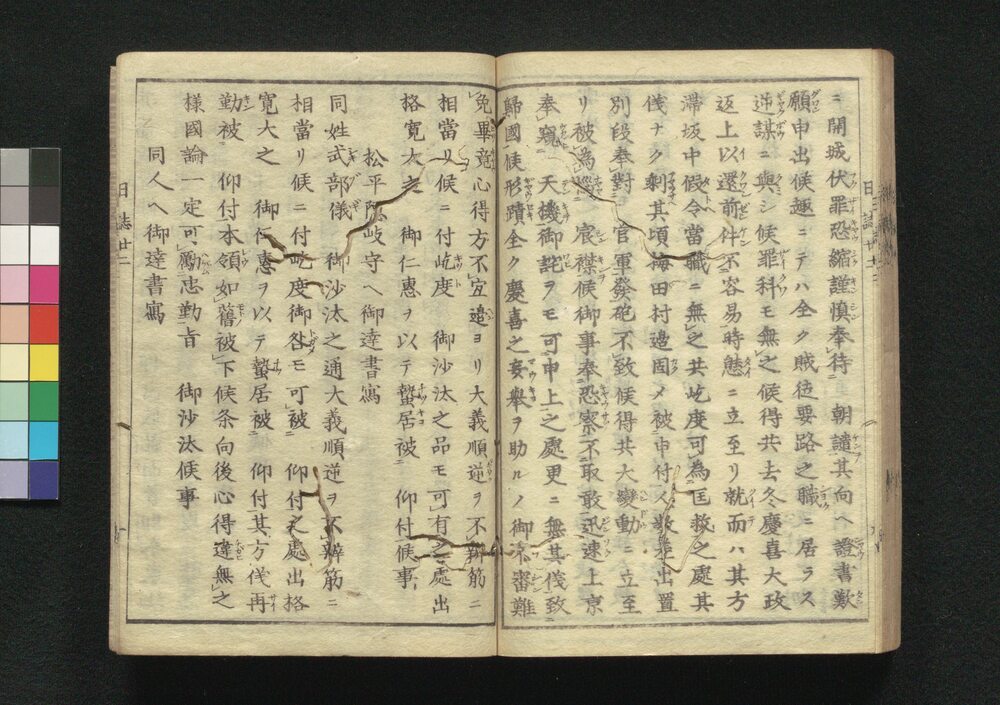 ニ開城伏罪恐縮謹慎奉待 朝譴其向ヘ證書歎
願申出候趣ニテハ全ク賊徒要路之職ニ居ラス
逆謀ニ與シ候罪科モ無之候得共去冬慶喜大政
返上以還前件不容易時態ニ立至リ就而ハ其方
滞坂中假令當職ニ無之共屹度可為匡救之處其
儀ナク剰其頃梅田村邉固メ被申付人数差出置
別段奉對 官軍發砲不致候得共大變動ニ立至
リ被為悩 宸襟候御事奉恐察不取敢迅速上京
奉窺 天機御詫ヲモ可申上之處更ニ無其儀致
歸國候形蹟全ク慶喜之妄舉ヲ助ルノ御不審難
免畢竟心得方不宜邉ヨリ大義順逆ヲ不辨筋ニ
相當リ候ニ付屹度 御沙汰之品モ可有之處出
格寛大之 御仁惠ヲ以テ蟄居被 仰付候事
松平隠岐守ヘ御達書寫
同姓式部儀 御沙汰之通大義順逆ヲ不辨筋ニ
相當リ候ニ付屹度御咎モ可被 仰付之處出格
寛大之 御仁惠ヲ以テ蟄居被 仰付其方儀再
勤被 仰付本領如舊被下候条向後心得違無之
様國論一定可勵忠勤旨 御沙汰候事
同人ヘ御達書寫
日誌廿二